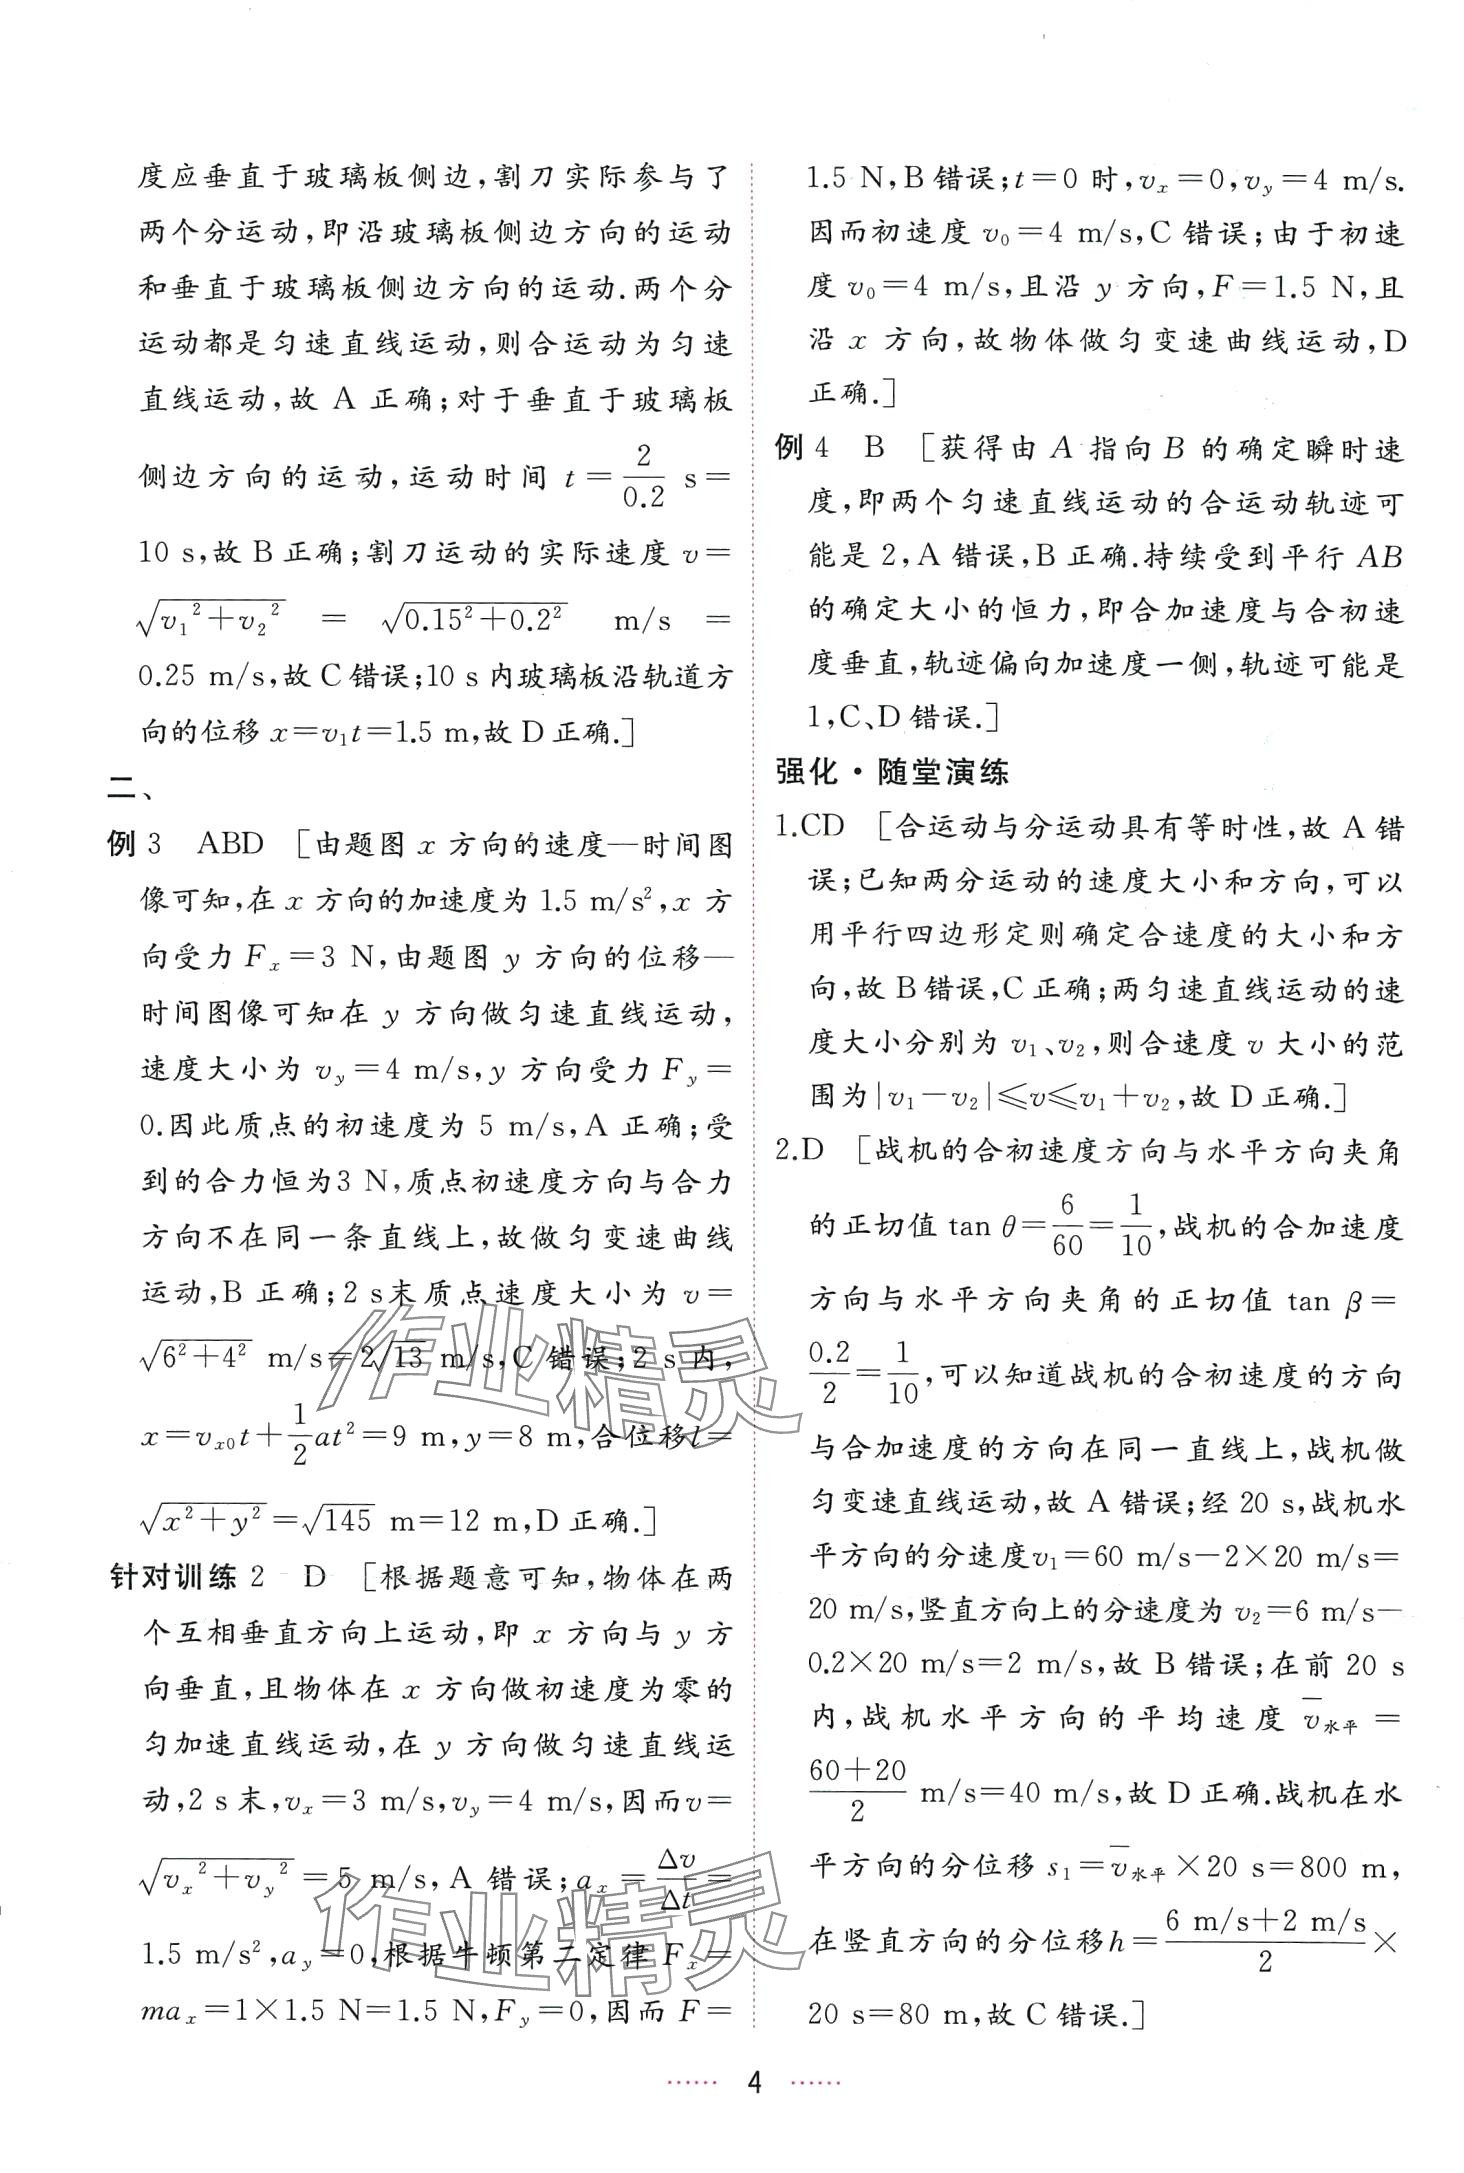 度应垂直于玻璃板侧边,割刀实际参与了
两个分运动,即沿玻璃板侧边方向的运动
和垂直于玻璃板侧边方向的运动.两个分
运动都是匀速直线运动,则合运动为匀速
直线运动,故 A 正确;对于垂直于玻璃板
侧边方向的运动,运动时间 t=\frac{2}{0.2} s=
10 s,故 B 正确;割刀运动的实际速度 v=
\sqrt{v_1^2+v_2^2} = \sqrt{0.15^2+0.2^2} m/s =
0.25 m/s,故 C 错误;10 s 内玻璃板沿轨道方
向的位移 x=v_1t=1.5 m,故 D 正确.]
二、
例 3 ABD [由题图 x 方向的速度—时间图
像可知,在 x 方向的加速度为 1.5 m/s²,x 方
向受力 F_x=3 N,由题图 y 方向的位移—
时间图像可知在 y 方向做匀速直线运动,
速度大小为 v_y=4 m/s,y 方向受力 F_y=
0.因此质点的初速度为 5 m/s,A 正确;受
到的合力恒为3 N,质点初速度方向与合力
方向不在同一条直线上,故做匀变速曲线
运动,B 正确;2 s末质点速度大小为 v=
\sqrt{6^2+4^2} m/s=2\sqrt{13} m/s,C 错误;2 s 内,
x=v_{x0}t+\frac{1}{2}at²=9 m,y=8 m,合位移l=
\sqrt{x^2+y^2}=\sqrt{145} m=12 m,D 正确.]
针对训练 2 D [根据题意可知,物体在两
个互相垂直方向上运动,即 x 方向与 y 方
向垂直,且物体在 x 方向做初速度为零的
匀加速直线运动,在 y 方向做匀速直线运
动,2 s 末,v_x=3 m/s,v_y=4 m/s,因而v=
\sqrt{v_x^2+v_y^2}=5 m/s,A 错误;a_x=\frac{Δv}{Δt}=
1.5 m/s²,a_y=0,根据牛顿第二定律 F_x=
ma_x=1×1.5 N=1.5 N,F_y=0,因而 F=
1.5 N,B 错误;t=0 时,v_x=0,v_y=4 m/s.
因而初速度 v_0=4 m/s,C 错误;由于初速
度 v_0=4 m/s,且沿 y 方向,F=1.5 N,且
沿 x 方向,故物体做匀变速曲线运动,D
正确.]
例 4 B [获得由 A 指向 B 的确定瞬时速
度,即两个匀速直线运动的合运动轨迹可
能是 2,A 错误,B 正确.持续受到平行 AB
的确定大小的恒力,即合加速度与合初速
度垂直,轨迹偏向加速度一侧,轨迹可能是
1,C、D 错误.]
强化·随堂演练
1.CD [合运动与分运动具有等时性,故 A 错
误;已知两分运动的速度大小和方向,可以
用平行四边形定则确定合速度的大小和方
向,故 B 错误,C 正确;两匀速直线运动的速
度大小分别为 v_1、v_2,则合速度 v 大小的范
围为|v_1-v_2|≤v≤v_1+v_2,故 D 正确.]
2.D [战机的合初速度方向与水平方向夹角
的正切值 tan θ=\frac{6}{60}=\frac{1}{10},战机的合加速度
方向与水平方向夹角的正切值 tan β=
\frac{0.2}{2}=\frac{1}{10},可以知道战机的合初速度的方向
与合加速度的方向在同一直线上,战机做
匀变速直线运动,故 A 错误;经 20 s,战机水
平方向的分速度v_1=60 m/s-2×20 m/s=
20 m/s,竖直方向上的分速度为 v_2=6 m/s-
0.2×20 m/s=2 m/s,故 B 错误;在前 20 s
内,战机水平方向的平均速度 \overline{v}_{水平}=
\frac{60+20}{2} m/s=40 m/s,故 D 正确.战机在水
平方向的分位移 s_1=\overline{v}_{水平}×20 s=800 m,
在竖直方向的分位移h=\frac{6 m/s+2 m/s}{2}×
20 s=80 m,故 C 错误.]
作业精灵
作业精灵
······ 4 ······